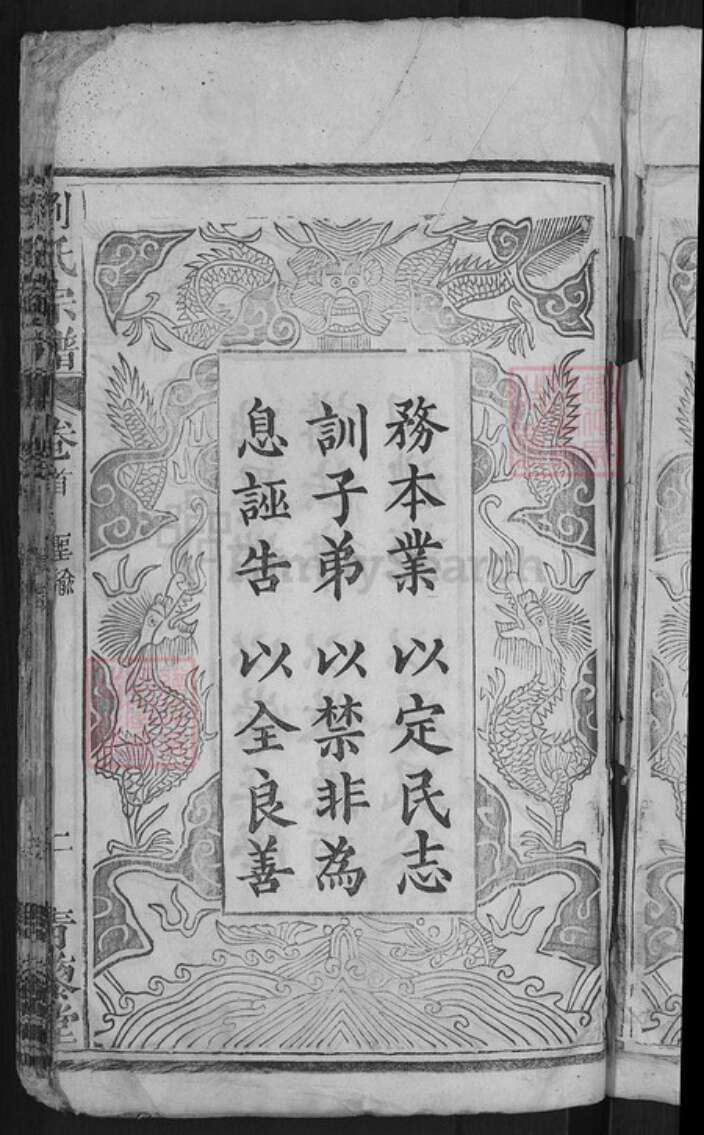 務本業 以定民志
訓子弟 以禁非為
息誣告 以全良善
劉氏宗譜
卷首 聖諭
青藜堂
FamilySearch